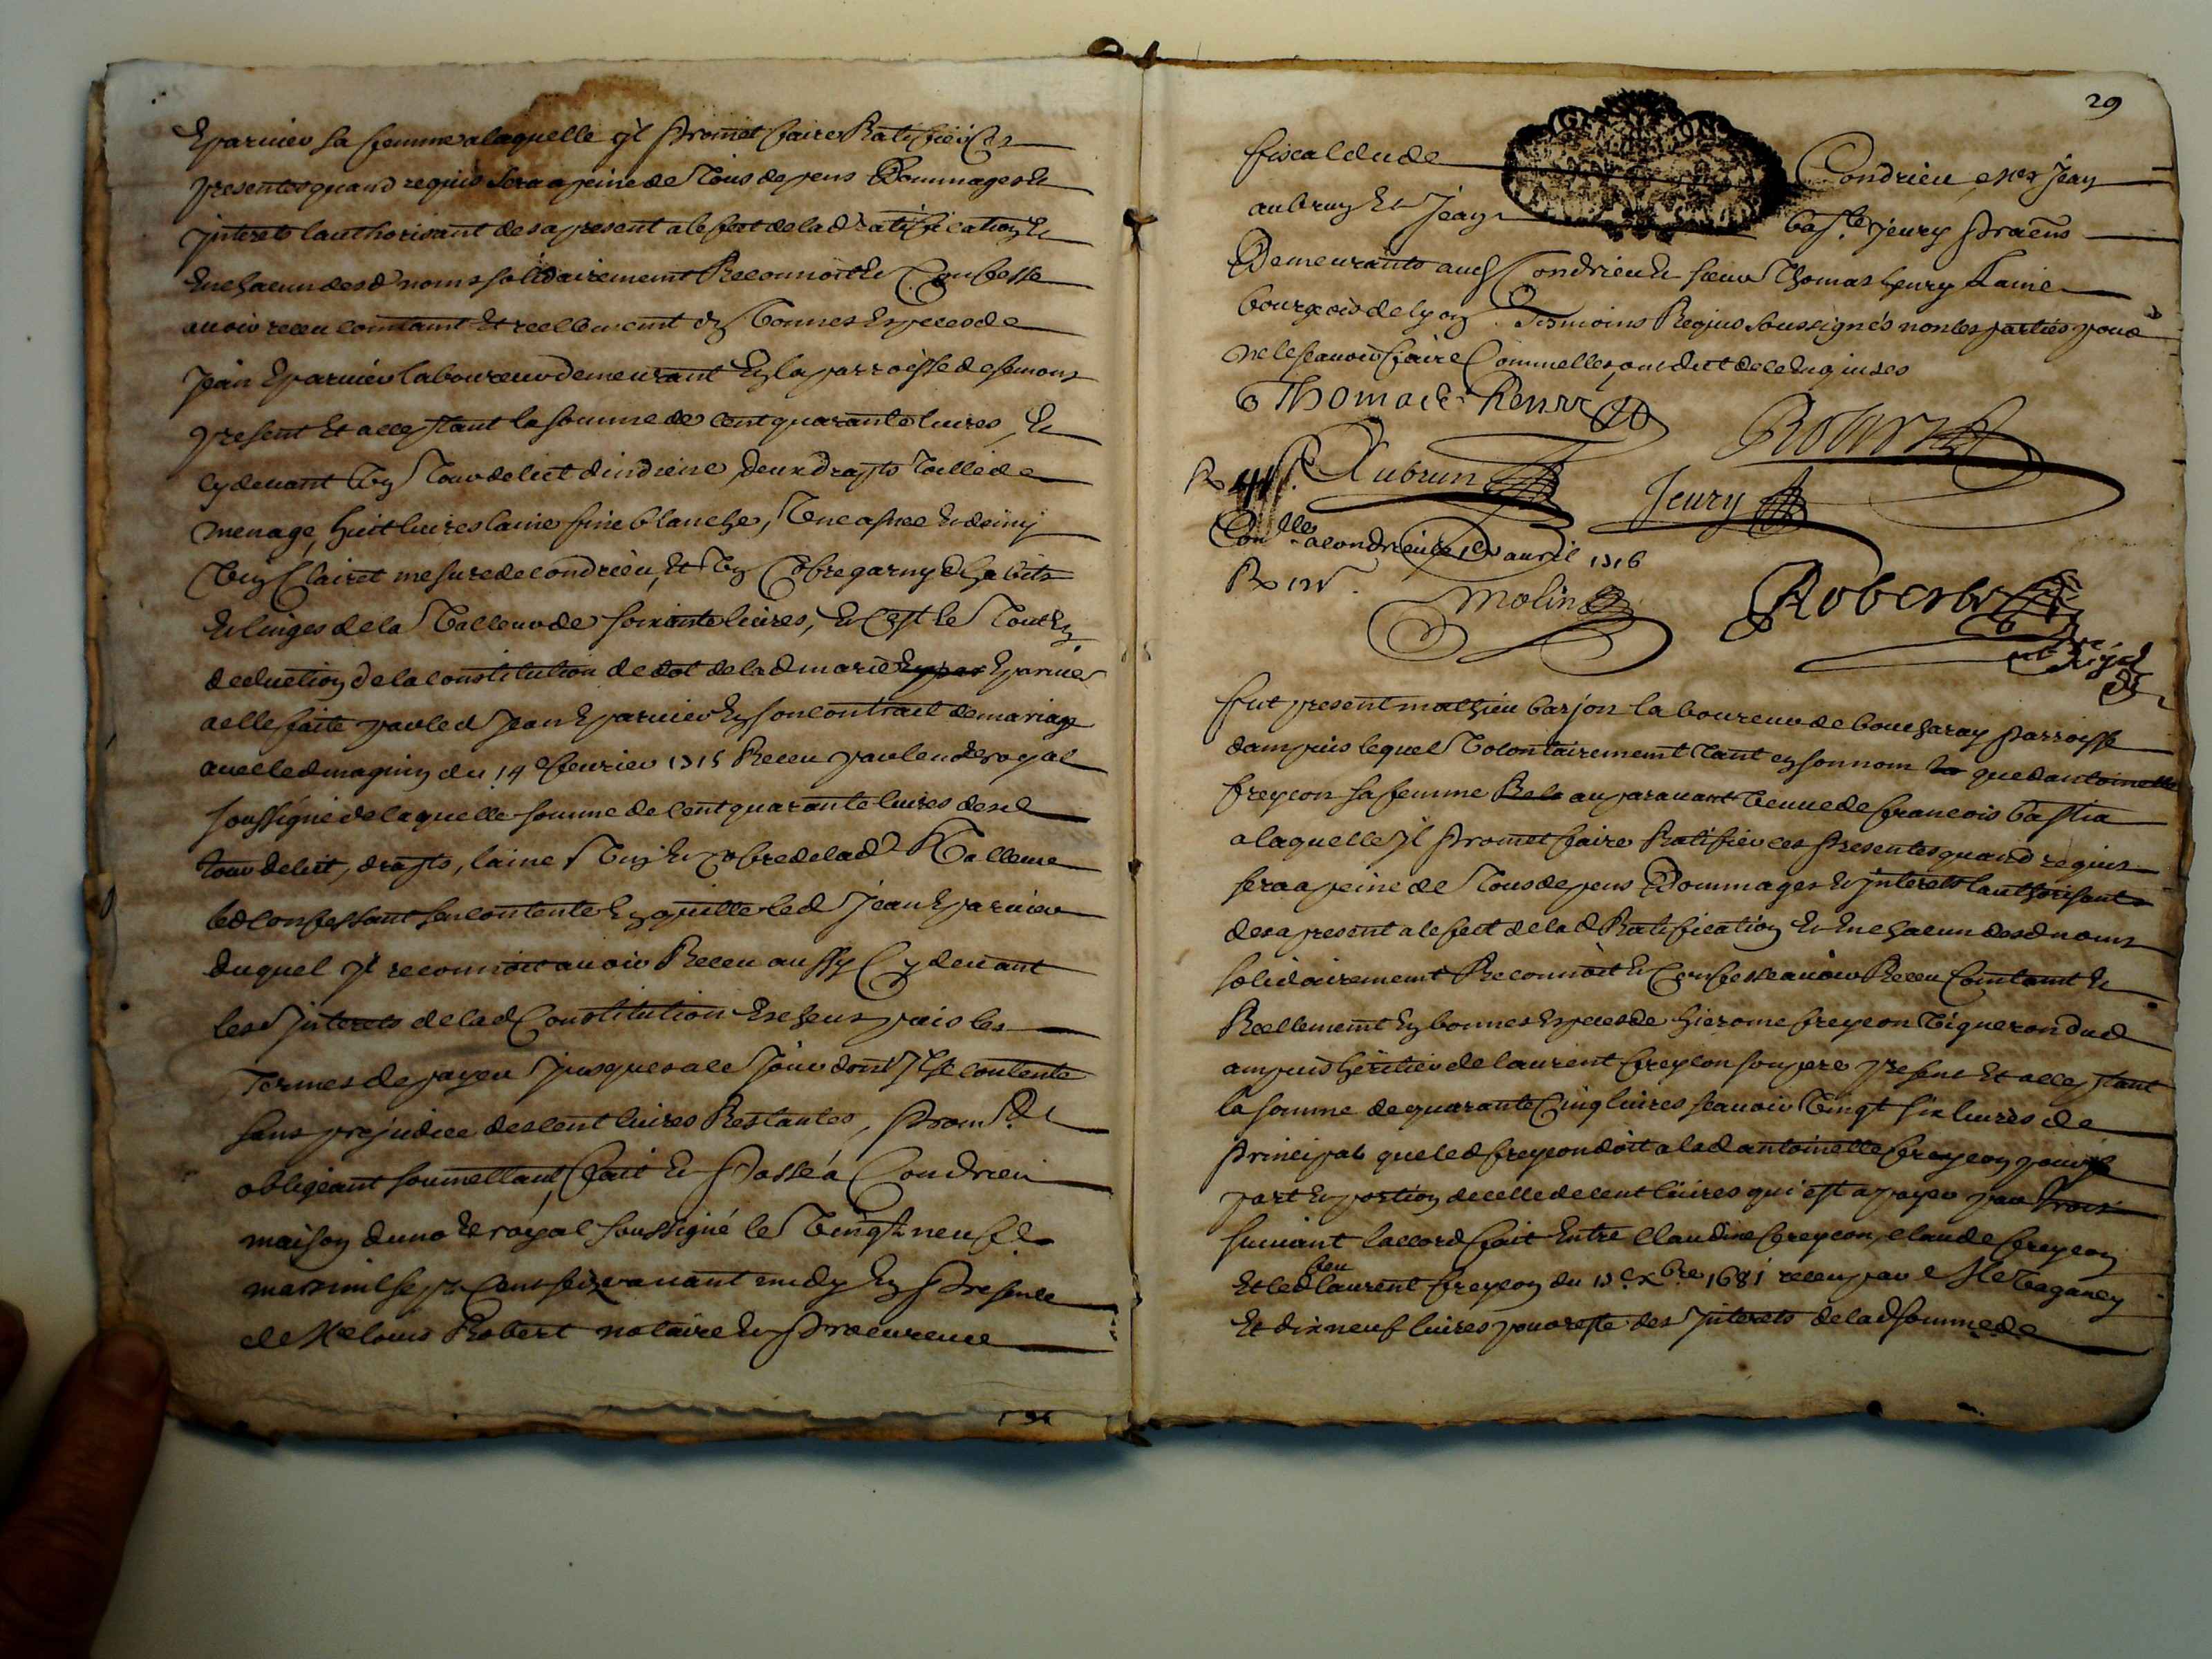 Eparuier sa femme a laquelle il promet faire Ratiffier les
presentes quand requis sera a peine de tous depens Dommages et
jnterets lauthorisant des a present a leffect de lad ratification Et
En chacun desd noms solidairement Reconnoit Et Confesse
auoir receu contant Et reellement en bonnes Especes de
Jean Eparuier laboureur demeurant En la parroisse de semons
present Et acceptant la somme de cent quarante liures, Et
cy deuant Un tour de lict dindiene, deux draps toille de
menage, huit liures laine fine blanche, Une asnee Et demy
Vin Clairet mesure de condrieu, Et Un Cofre garny dhabits
Et linges de la Valleur de soixante liures, Et cest le tout En
deduction de la constitution de dot de lad marie Eparuier
a elle faite par led Jean Eparuier En son contract de mariage
auec led maguin du 14e feurier 1715 Receu par le nore royal
soussigné de laquelle somme de cent quarante liures desd
tour de lict, draps, laine Vin Et cofre de lad Valleur
led confessant sen contente En quitte led Jean Eparuier
duquel jl reconnoit auoir Receu aussy Cy deuant
les jnterets de lad Constitution Escheus puis les
termes de payer jusques a ce jour dont jl se contente
sans prejudice des cent liures Restantes, prom.t Et
obligeant soumettant fait Et passé a Condrieu
maison du nore royal soussigné le Vingt neuf
mars mil sept Cent seize auant midy En presence
de Me louis Robert notaire Et procureur
29
fiscal dud Condrieu, Mes Jean
aubrun Et Jean bap.te Jeury praens
Demeurants aud Condrieu Et sieur Thomas henry Laine
bourgeois de lyon tesmoins Requis soussignés non les parties pour
ne le scauoir faire Comme elles ont dict de ce Enquises
Thomas henry
Robert
Aubrun
Jeury
Con.lle a condrieu le auril 1716
R 12s
Molin
Robert
nore Royal
fut present mathieu barjon laboureur de boucharay parroisse
dampuis lequel Volontairement tant en son nom que dantoinette
freycon sa femme auparauant Veuue de francois bastia
a laquelle jl promet faire Ratiffier les presentes quand requis
sera a peine de tous depens Dommages Et jnterets lauthorisant
des a present a leffect de lad Ratification Et En chacun desd noms
solidairement Reconnoit Et Confesse auoir Receu Contant Et
Reellement En bonnes Especes de hierome freycon Vigneron dud
ampuis heritier de laurent freycon son pere present Et acceptant
la somme de quarante Cinq liures scauoir Vingt six liures de
principal que led freycon doit a lad antoinette freycon pour sa
part Et portion de celle de cent liures qui est a payer par trois
suiuant laccord fait Entre Claudine freycon, claude freycon
Et led feu laurent freycon du xbre 1681 receu par Me Vaganey
Et dix neuf liures pour reste des jnterets de lad somme de